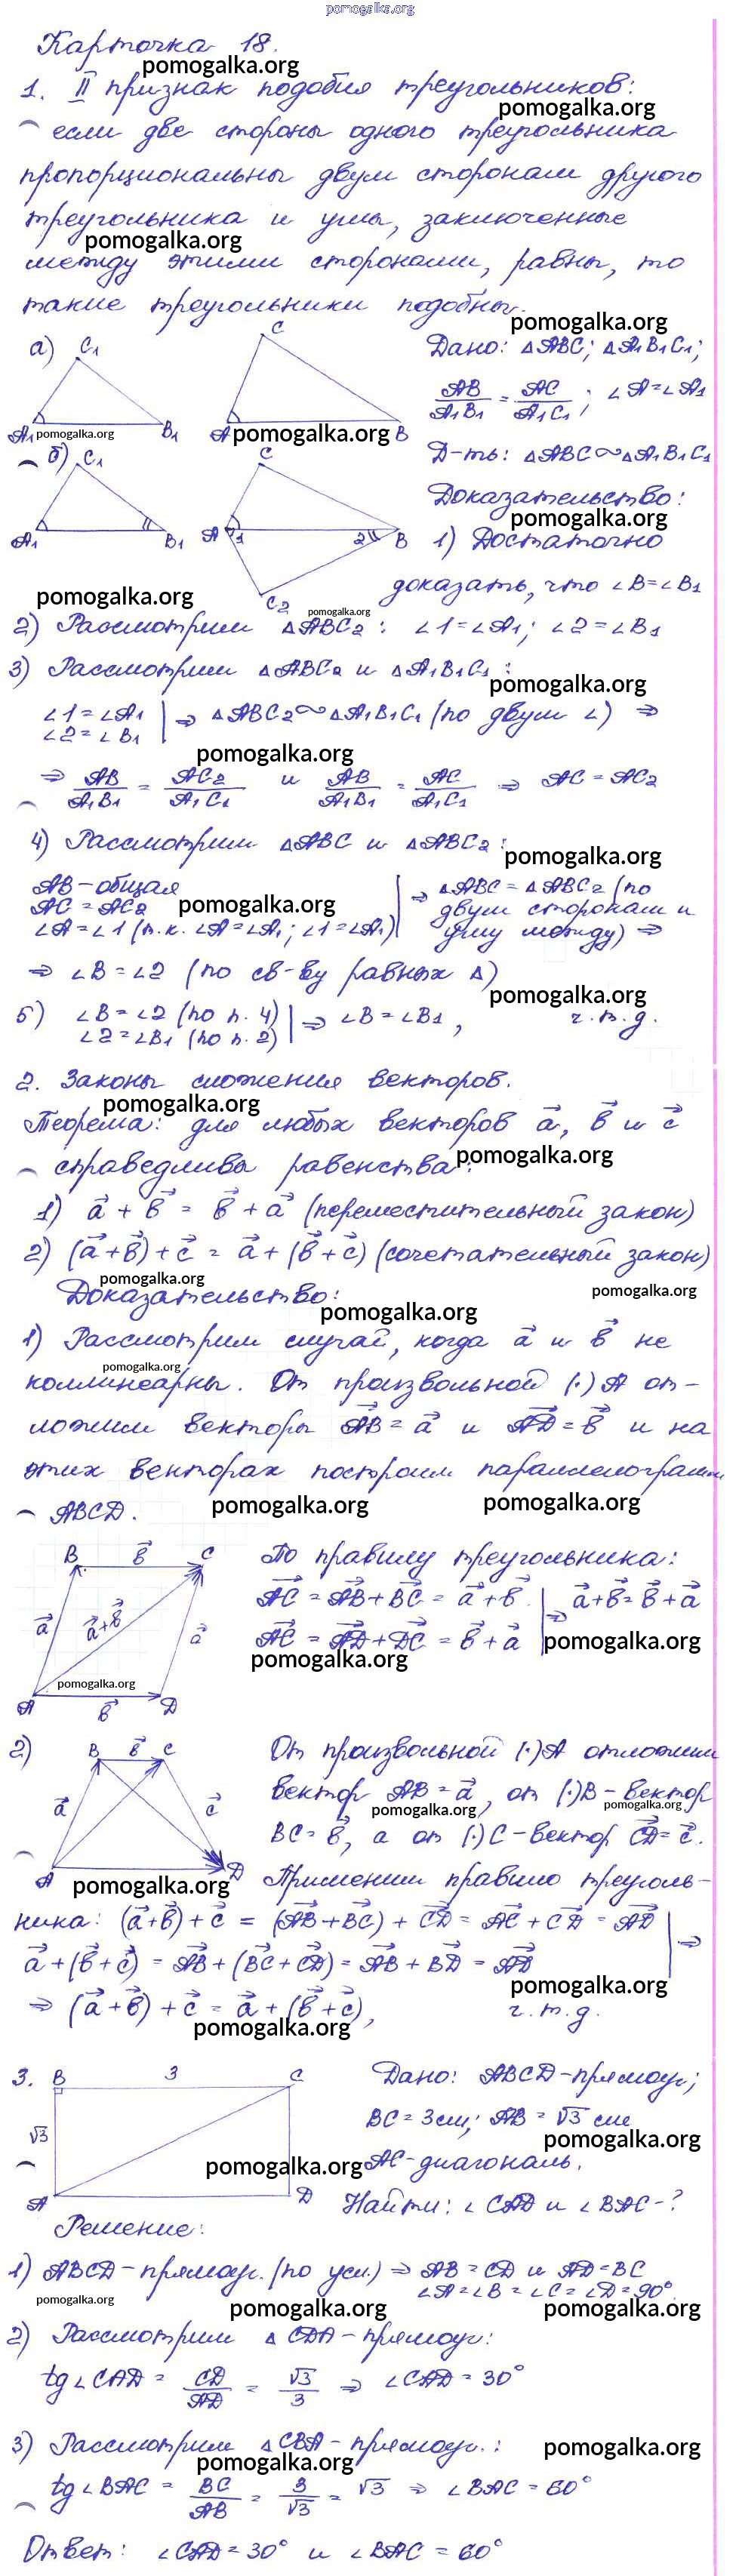 pomogalka.org
Карточка 18.
pomogalka.org
1. II признак подобия треугольников:
pomogalka.org
если две стороны одного треугольника
пропорциональны двум сторонам другого
треугольника и углы, заключенные
pomogalka.org
между этими сторонами, равны, то
такие треугольники подобны.
pomogalka.org
а) C₁ C Дано: △ABC; △A₁B₁C₁;
AB/A₁B₁ = AC/A₁C₁; ∠A=∠A₁
A₁ pomogalka.org B₁ A pomogalka.org B
б) C₁ C Д-ть: △ABC∾△A₁B₁C₁
Доказательство:
pomogalka.org
A₁ B₁ A 1 2 B 1) Достаточно
доказать, что ∠B=∠B₁
pomogalka.org C₂ pomogalka.org
2) Рассмотрим △ABC₂: ∠1=∠A₁; ∠2=∠B₁
3) Рассмотрим △ABC₂ и △A₁B₁C₁:
pomogalka.org
∠1=∠A₁ | ⇒ △ABC₂∾△A₁B₁C₁ (по двум ∠) ⇒
∠2=∠B₁
pomogalka.org
⇒ AB/A₁B₁ = AC₂/A₁C₁ и AB/A₁B₁ = AC/A₁C₁ ⇒ AC = AC₂
4) Рассмотрим △ABC и △ABC₂:
pomogalka.org
AB-общая | ⇒ △ABC = △ABC₂ (по
AC = AC₂ pomogalka.org двум сторонам и
∠A=∠1 (т.к. ∠A=∠A₁; ∠1=∠A₁) углу между) ⇒
⇒ ∠B=∠2 (по св-ву равных △)
pomogalka.org
5) ∠B=∠2 (по п. 4) | ⇒ ∠B=∠B₁, ч.т.д.
∠2=∠B₁ (по п. 2)
2. Законы сложения векторов.
pomogalka.org
Теорема: для любых векторов a⃗, b⃗ и c⃗
справедливы равенства:
pomogalka.org
1) a⃗ + b⃗ = b⃗ + a⃗ (переместительный закон)
2) (a⃗+b⃗)+c⃗ = a⃗+(b⃗+c⃗) (сочетательный закон)
pomogalka.org pomogalka.org
Доказательство:
pomogalka.org
1) Рассмотрим случай, когда a⃗ и b⃗ не
pomogalka.org
коллинеарны. От произвольной (·)A от-
ложим векторы AB⃗ = a⃗ и AD⃗ = b⃗ и на
этих векторах построим параллелограмм
ABCD. pomogalka.org pomogalka.org
B b⃗ C По правилу треугольника:
a⃗ a⃗+b⃗ a⃗ AC⃗ = AB⃗+BC⃗ = a⃗+b⃗ | ⇒ a⃗+b⃗=b⃗+a⃗
AC⃗ = AD⃗+DC⃗ = b⃗+a⃗ pomogalka.org
pomogalka.org
pomogalka.org
A b⃗ D
2) B b⃗ C От произвольной (·)A отложим
a⃗ c⃗ вектор AB⃗ = a⃗, от (·)B - вектор
pomogalka.org pomogalka.org
BC = b⃗, а от (·)C - вектор CD⃗ = c⃗.
A pomogalka.org D Применим правило треуголь-
ника: (a⃗+b⃗)+c⃗ = (AB⃗+BC⃗)+CD⃗ = AC⃗+CD⃗ = AD⃗ | ⇒
a⃗+(b⃗+c⃗) = AB⃗+(BC⃗+CD⃗) = AB⃗+BD⃗ = AD⃗
pomogalka.org
⇒ (a⃗+b⃗)+c⃗ = a⃗+(b⃗+c⃗), ч.т.д.
pomogalka.org
3. B 3 C Дано: ABCD-прямоуг;
√3 BC = 3см; AB = √3 см
pomogalka.org
pomogalka.org AC-диагональ.
A D Найти: ∠CAD и ∠BAC-?
Решение:
1) ABCD-прямоуг. (по усл.) ⇒ AB = CD и AD=BC
∠A=∠B=∠C=∠D=90°.
pomogalka.org pomogalka.org pomogalka.org
2) Рассмотрим △CDA-прямоуг:
tg∠CAD = CD/AD = √3/3 ⇒ ∠CAD = 30°
3) Рассмотрим △CBA-прямоуг.: pomogalka.org
pomogalka.org
tg∠BAC = BC/AB = 3/√3 = √3 ⇒ ∠BAC = 60°
Ответ: ∠CAD = 30° и ∠BAC = 60°